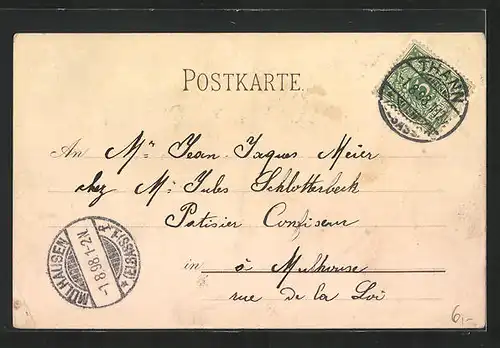 POSTKARTE.
THANN
An Mr Jean-Jaques Meier
chez Mr Jules Schlotterbeck
Patisier Confiseur
in à Mulhouse
rue de la Loi
MÜLHAUSEN
-1.8.98.1-2N.
* (ELSASS) P
6,-